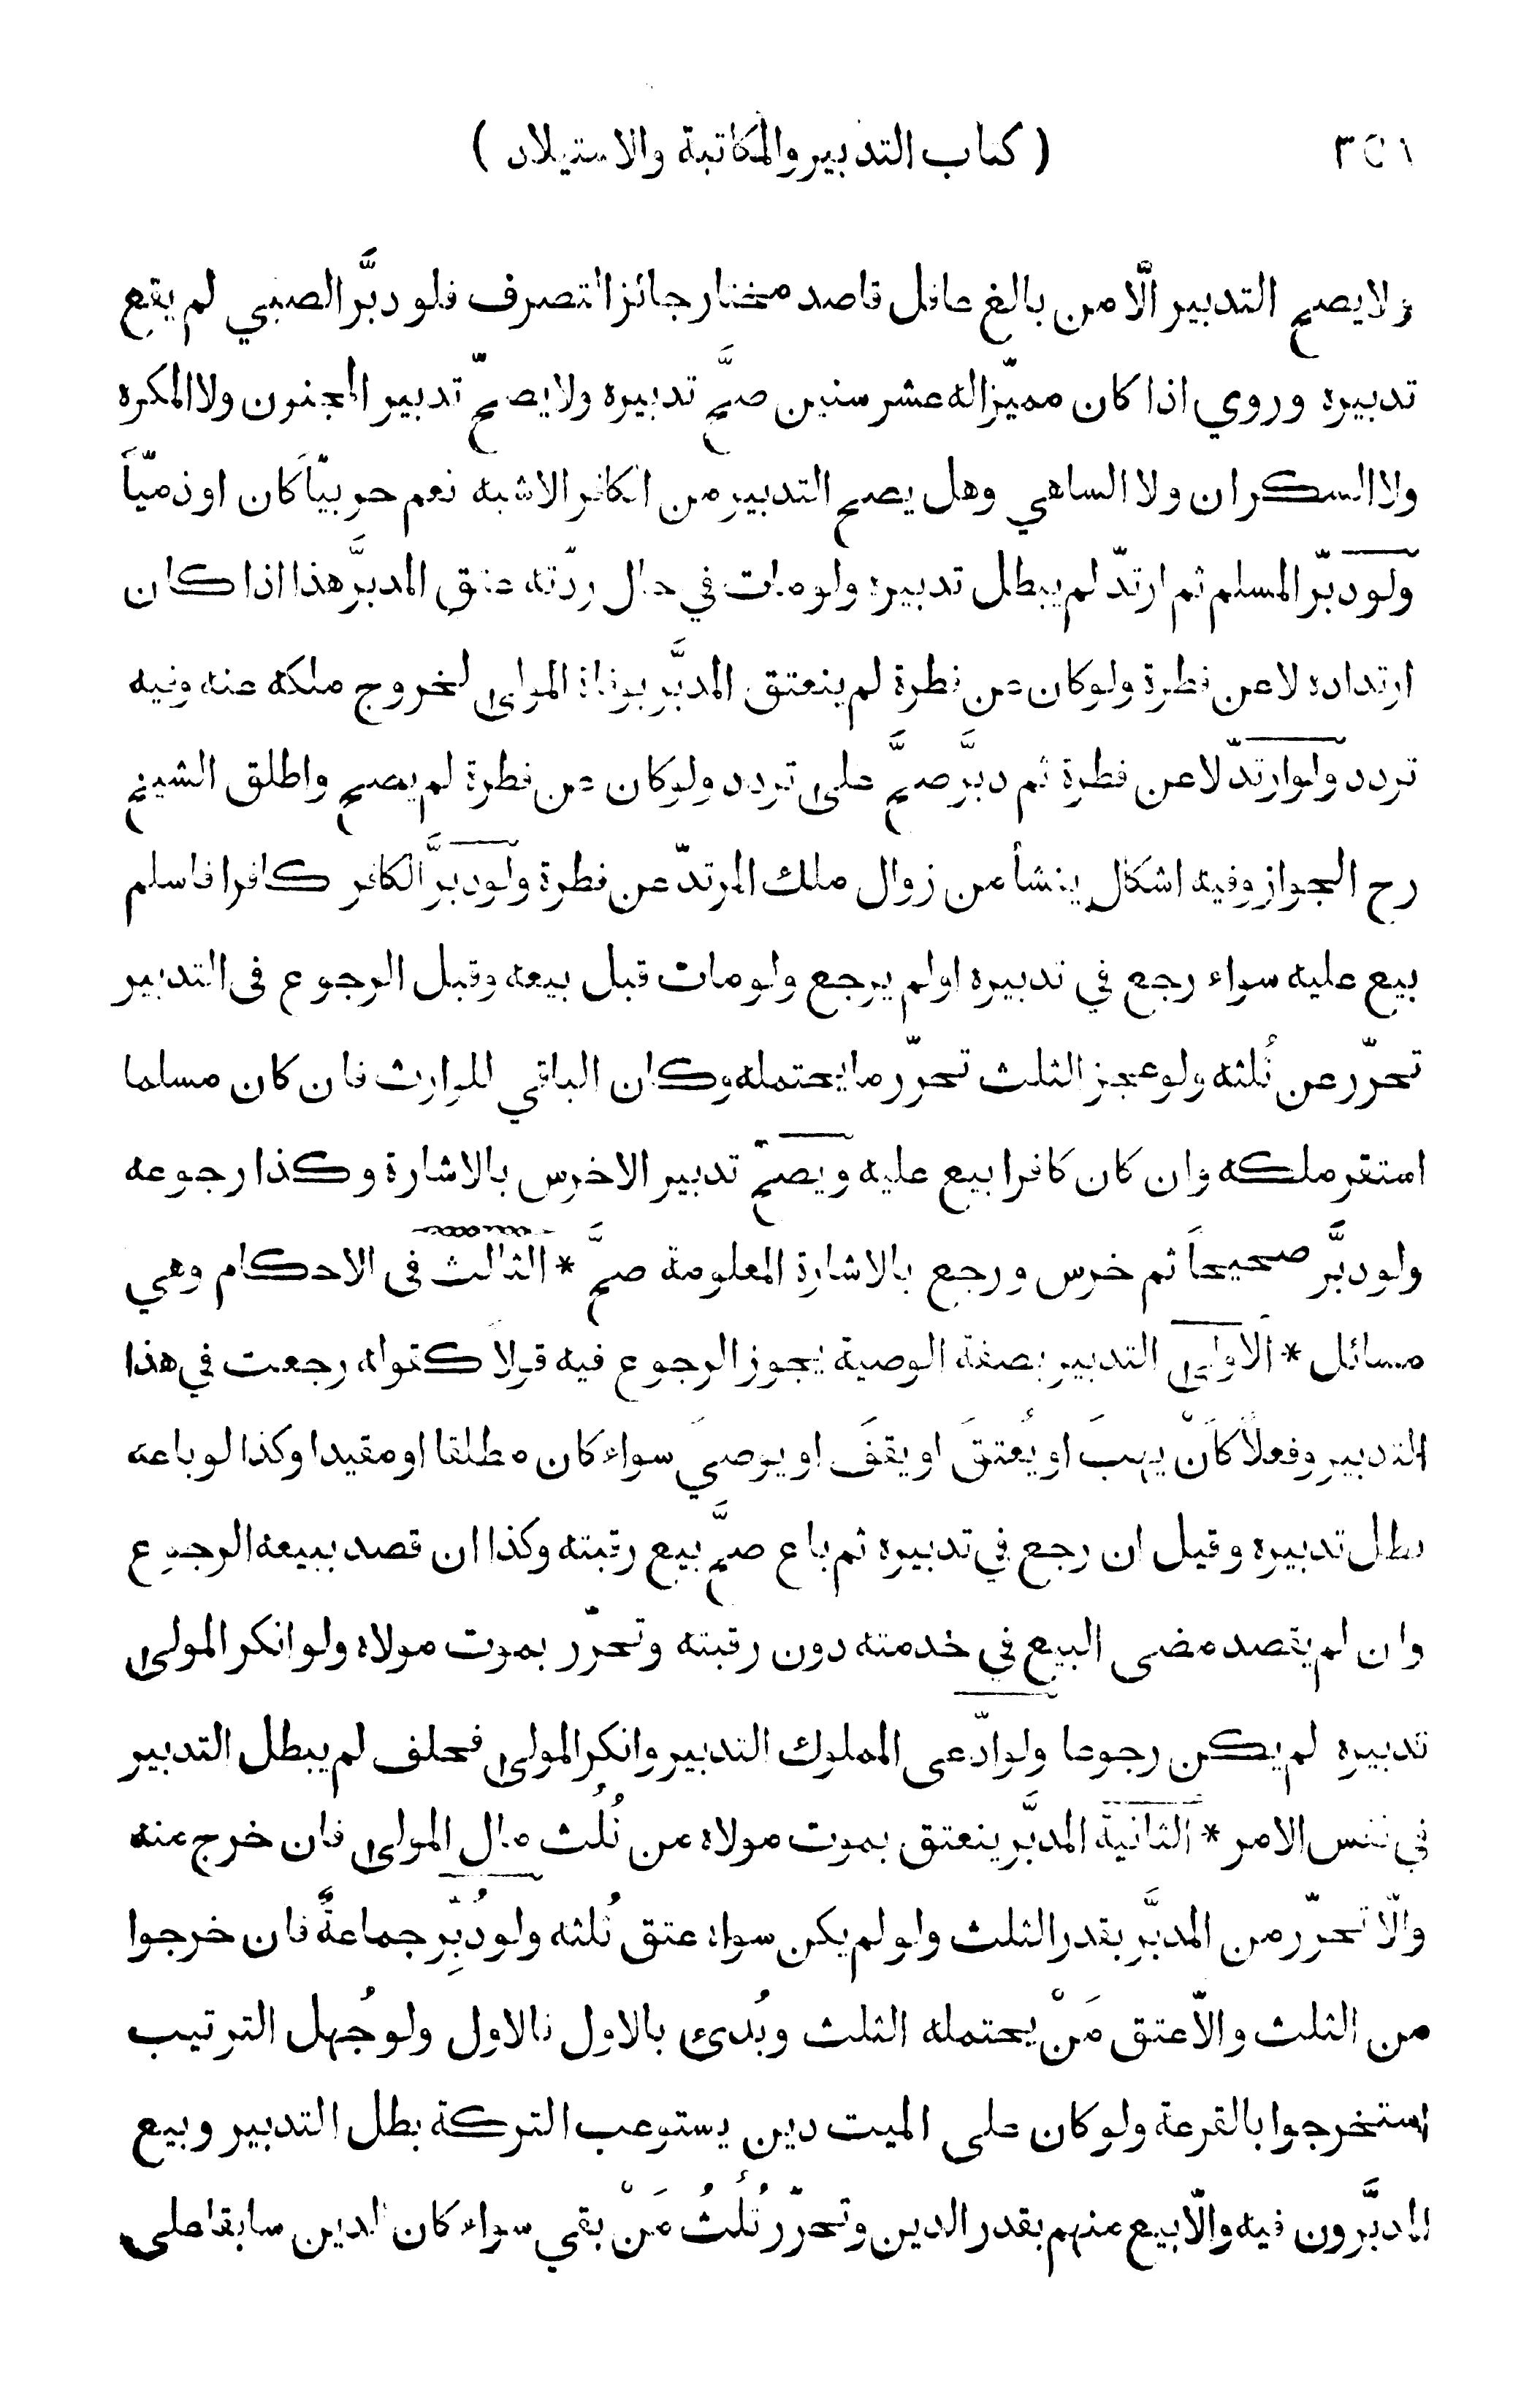 ٣٥١ ( كتاب التدبير والمكاتبة والاستيلاد )
ولا يصح التدبير الّا من بالغ عاقل قاصد مختار جائز التصرف فلو دبَّر الصبي لم يقع
تدبيره وروي اذا كان مميّزا له عشر سنين صحَّ تدبيره ولا يصحّ تدبير المجنون ولا المكره
ولا السكران ولا الساهي وهل يصح التدبير من الكافر الاشبه نعم حربيّاً كان او ذميّاً
ولو دبّر المسلم ثم ارتدّ لم يبطل تدبيره ولو مات في حال ردّته عتق المدبَّر هذا اذا كان
ارتداده لا عن فطرة ولو كان عن فطرة لم ينعتق المدبَّر بوفاة المولى لخروج ملكه عنه وفيه
تردد ولو ارتدّ لا عن فطرة ثم دبَّر صحَّ على تردد ولو كان عن فطرة لم يصح واطلق الشيخ
رح الجواز وفيه اشكال ينشأ من زوال ملك المرتدّ عن فطرة ولو دبَّر الكافر كافرا فاسلم
بيع عليه سواء رجع في تدبيره او لم يرجع ولو مات قبل بيعه وقبل الرجوع فى التدبير
تحرّر عن ثُلثه ولو عجز الثلث تحرّر ما يحتمله وكان الباقي للوارث فان كان مسلما
استقر ملكه وان كان كافرا بيع عليه ويصحّ تدبير الاخرس بالاشارة وكذا رجوعه
ولو دبَّر صحيحاً ثم خرس ورجع بالاشارة المعلومة صحَّ * الثالث فى الاحكام وهي
مسائل * الاولى التدبير بصفة الوصية يجوز الرجوع فيه قولاً كقوله رجعت في هذا
التدبير وفعلاً كاَنْ يهبَ او يُعتقَ او يقفَ او يوصيَ سواء كان مطلقا او مقيدا وكذا لو باعه
بطل تدبيره وقيل ان رجع في تدبيره ثم باع صحَّ بيع رقبته وكذا ان قصد ببيعه الرجوع
وان لم يقصد مضى البيع في خدمته دون رقبته وتحرّر بموت مولاه ولو انكر المولى
تدبيره لم يكن رجوعا ولو ادّعى المملوك التدبير وانكر المولى فحلف لم يبطل التدبير
في نفس الامر * الثانية المدبَّر ينعتق بموت مولاه من ثُلُث مال المولى فان خرج منه
والّا تحرّر من المدبَّر بقدر الثلث ولو لم يكن سواه عتق ثُلثه ولو دُبِّر جماعةً فان خرجوا
من الثلث والّا عتق مَنْ يحتمله الثلث وبُدئ بالاول فالاول ولو جُهل الترتيب
استخرجوا بالقرعة ولو كان على الميت دين يستوعب التركة بطل التدبير وبيع
المدبَّرون فيه والّا بيع منهم بقدر الدين وتحرّر ثُلُثُ مَنْ بقي سواء كان الدين سابقا على